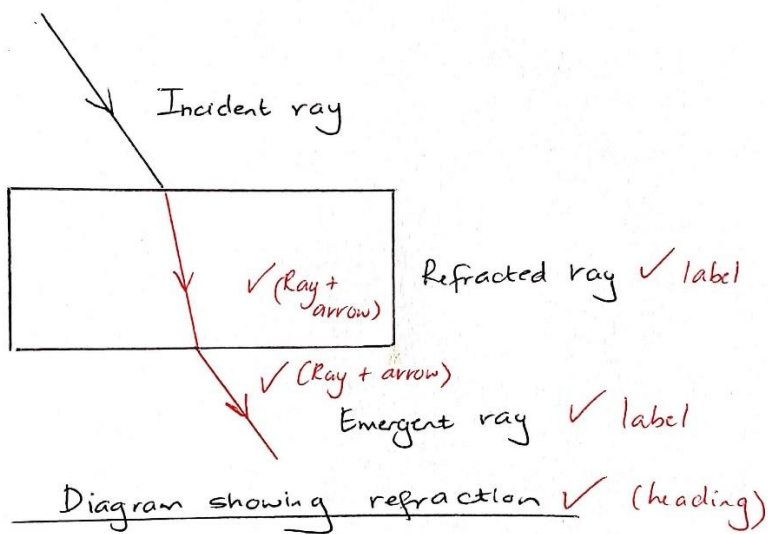 Incident ray
✓ (Ray +
arrow)
Refracted ray ✓ label
✓ (Ray + arrow)
Emergent ray ✓ label
Diagram showing refraction ✓ (heading)